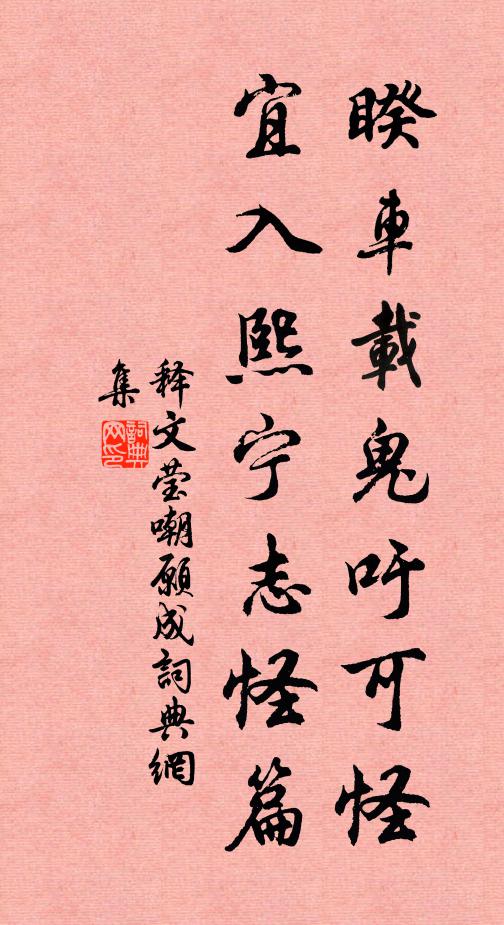 睽車載鬼吁可怪
宜入熙宁志怪篇
释文莹嘲願成詞典網
集
詞典网印